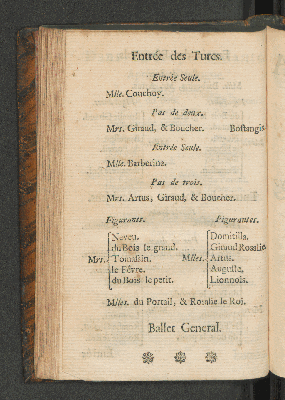 Entrée des Turcs.
Entrée Seule.
Mlle. Couchoy.
Pas de deux.
Mrs. Giraud, & Boucher. Bostangis
Entrée Seule.
Mlle. Barberina.
Pas de trois.
Mrs. Artus, Giraud, & Boucher.
Figurants. Figurantes.
Neveu. Domitilla.
du Bois le grand. Giraud Rosalie
Mrs. Tomassin. Mlles. Artus.
le Févre. Auguste.
du Bois le petit. Lionnois.
Mlles. du Portail, & Rosalie le Roi.
Ballet General.